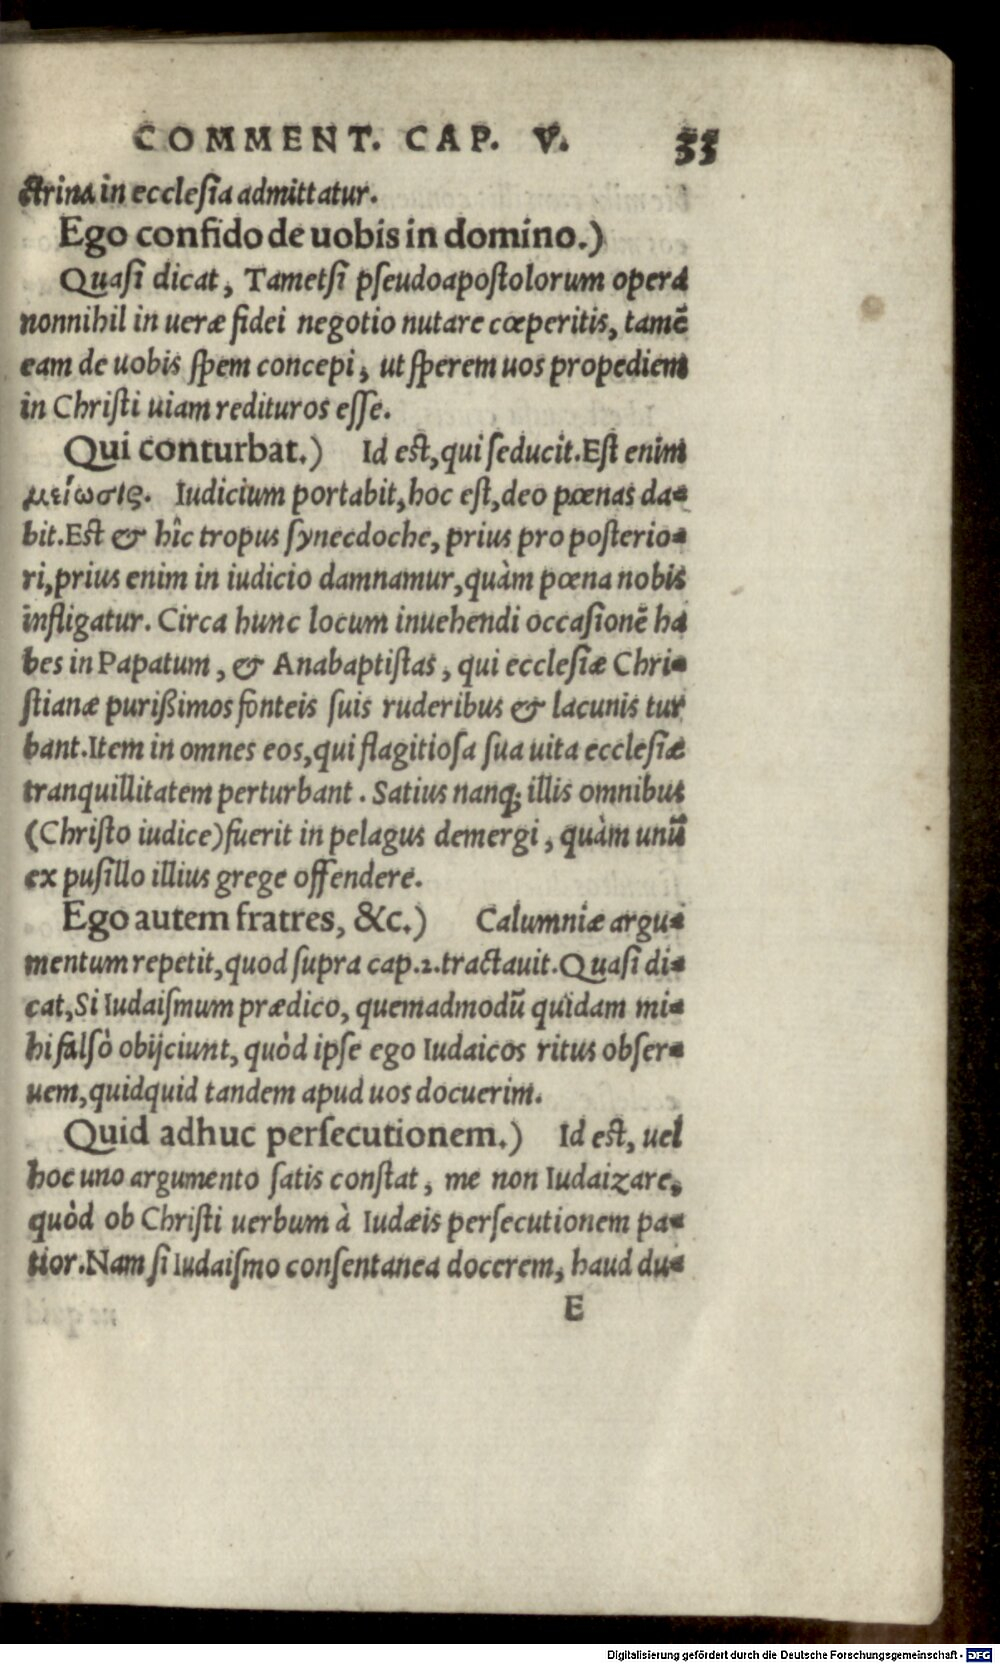 COMMENT. CAP. V. 33
ctrina in ecclesia admittatur.
Ego confido de uobis in domino.)
Quasi dicat, Tametsi pseudoapostolorum opera
nonnihil in ueræ fidei negotio nutare cœperitis, tamē
eam de uobis spem concepi, ut sperem uos propediem
in Christi uiam redituros esse.
Qui conturbat.) Id est, qui seducit. Est enim
μείωσις. Iudicium portabit, hoc est, deo pœnas da-
bit. Est & hîc tropus synecdoche, prius pro posterio-
ri, prius enim in iudicio damnamur, quàm pœna nobis
infligatur. Circa hunc locum inuehendi occasionē ha
bes in Papatum, & Anabaptistas, qui ecclesiæ Chri-
stianæ purißimos fonteis suis ruderibus & lacunis tur
bant. Item in omnes eos, qui flagitiosa sua uita ecclesiæ
tranquillitatem perturbant. Satius nanq; illis omnibus
(Christo iudice) fuerit in pelagus demergi, quàm unū
ex pusillo illius grege offendere.
Ego autem fratres, &c.) Calumniæ argu-
mentum repetit, quod supra cap. 2. tractauit. Quasi di-
cat, Si Iudaismum prædico, quemadmodū quidam mi-
hi falsò obijciunt, quòd ipse ego Iudaicos ritus obser-
uem, quidquid tandem apud uos docuerim.
Quid adhuc persecutionem.) Id est, uel
hoc uno argumento satis constat, me non Iudaizare,
quòd ob Christi uerbum à Iudæis persecutionem pa-
tior. Nam si Iudaismo consentanea docerem, haud du-
E
Digitalisierung gefördert durch die Deutsche Forschungsgemeinschaft - DFG